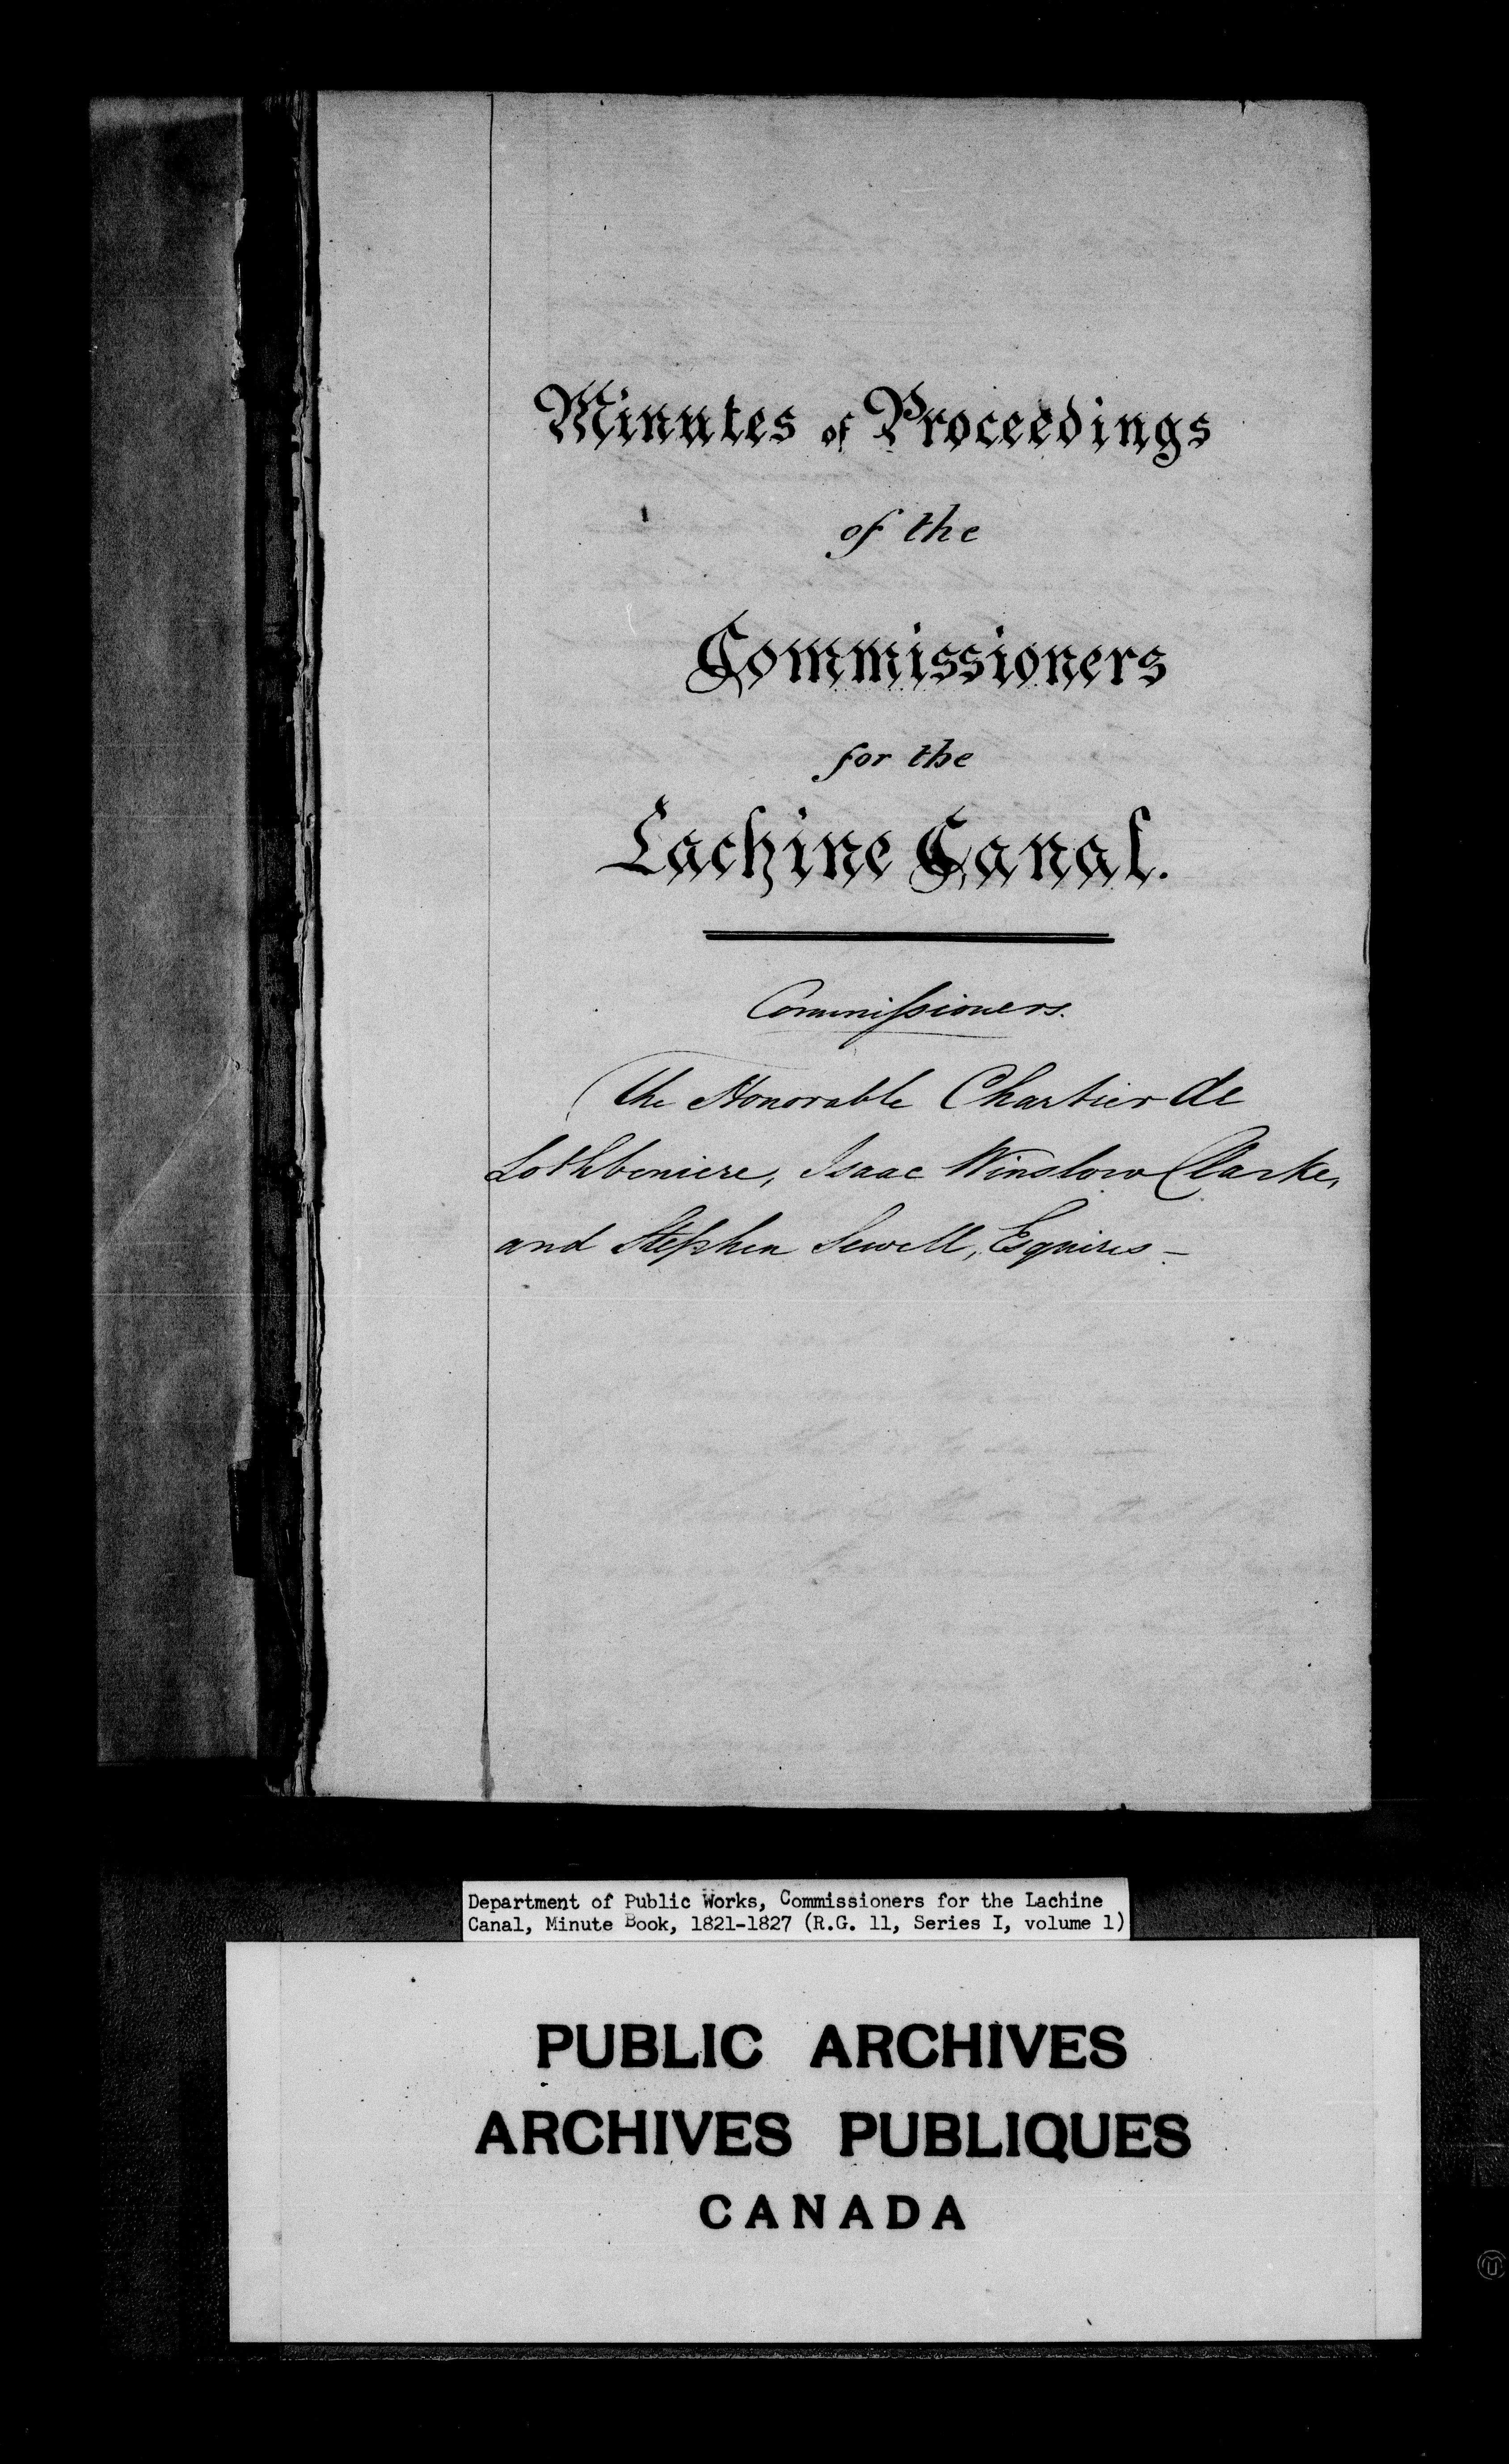 Minutes of Proceedings
of the
Commissioners
for the
Lachine Canal.
Commissioners.
The Honorable Chartier de
Lothbiniere, Isaac Winslow Clarke,
and Stephen Sewell, Esquires -
Department of Public Works, Commissioners for the Lachine
Canal, Minute Book, 1821-1827 (R.G. 11, Series I, volume 1)
PUBLIC ARCHIVES
ARCHIVES PUBLIQUES
CANADA